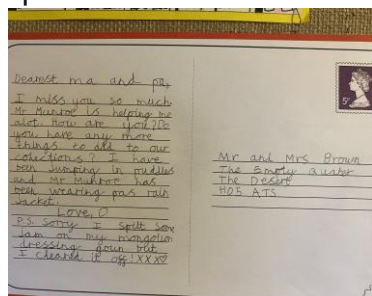 Dearest ma and pa,
I miss you so much
Mr Munroe is helping me
alot. How are you? Do
you have any more
things to add to our
colections? I have
been Jumping in puddles
and Mr Munroe has
been wearing pas rain
Jacket.
Love, O
P.S. Sorry I spilt some
Jam on my mongolian
dressing goun but
I cleaned it off! XXX♡
5p
Mr and Mrs Brown
The Empty quater
The Desert
HO5 ATS